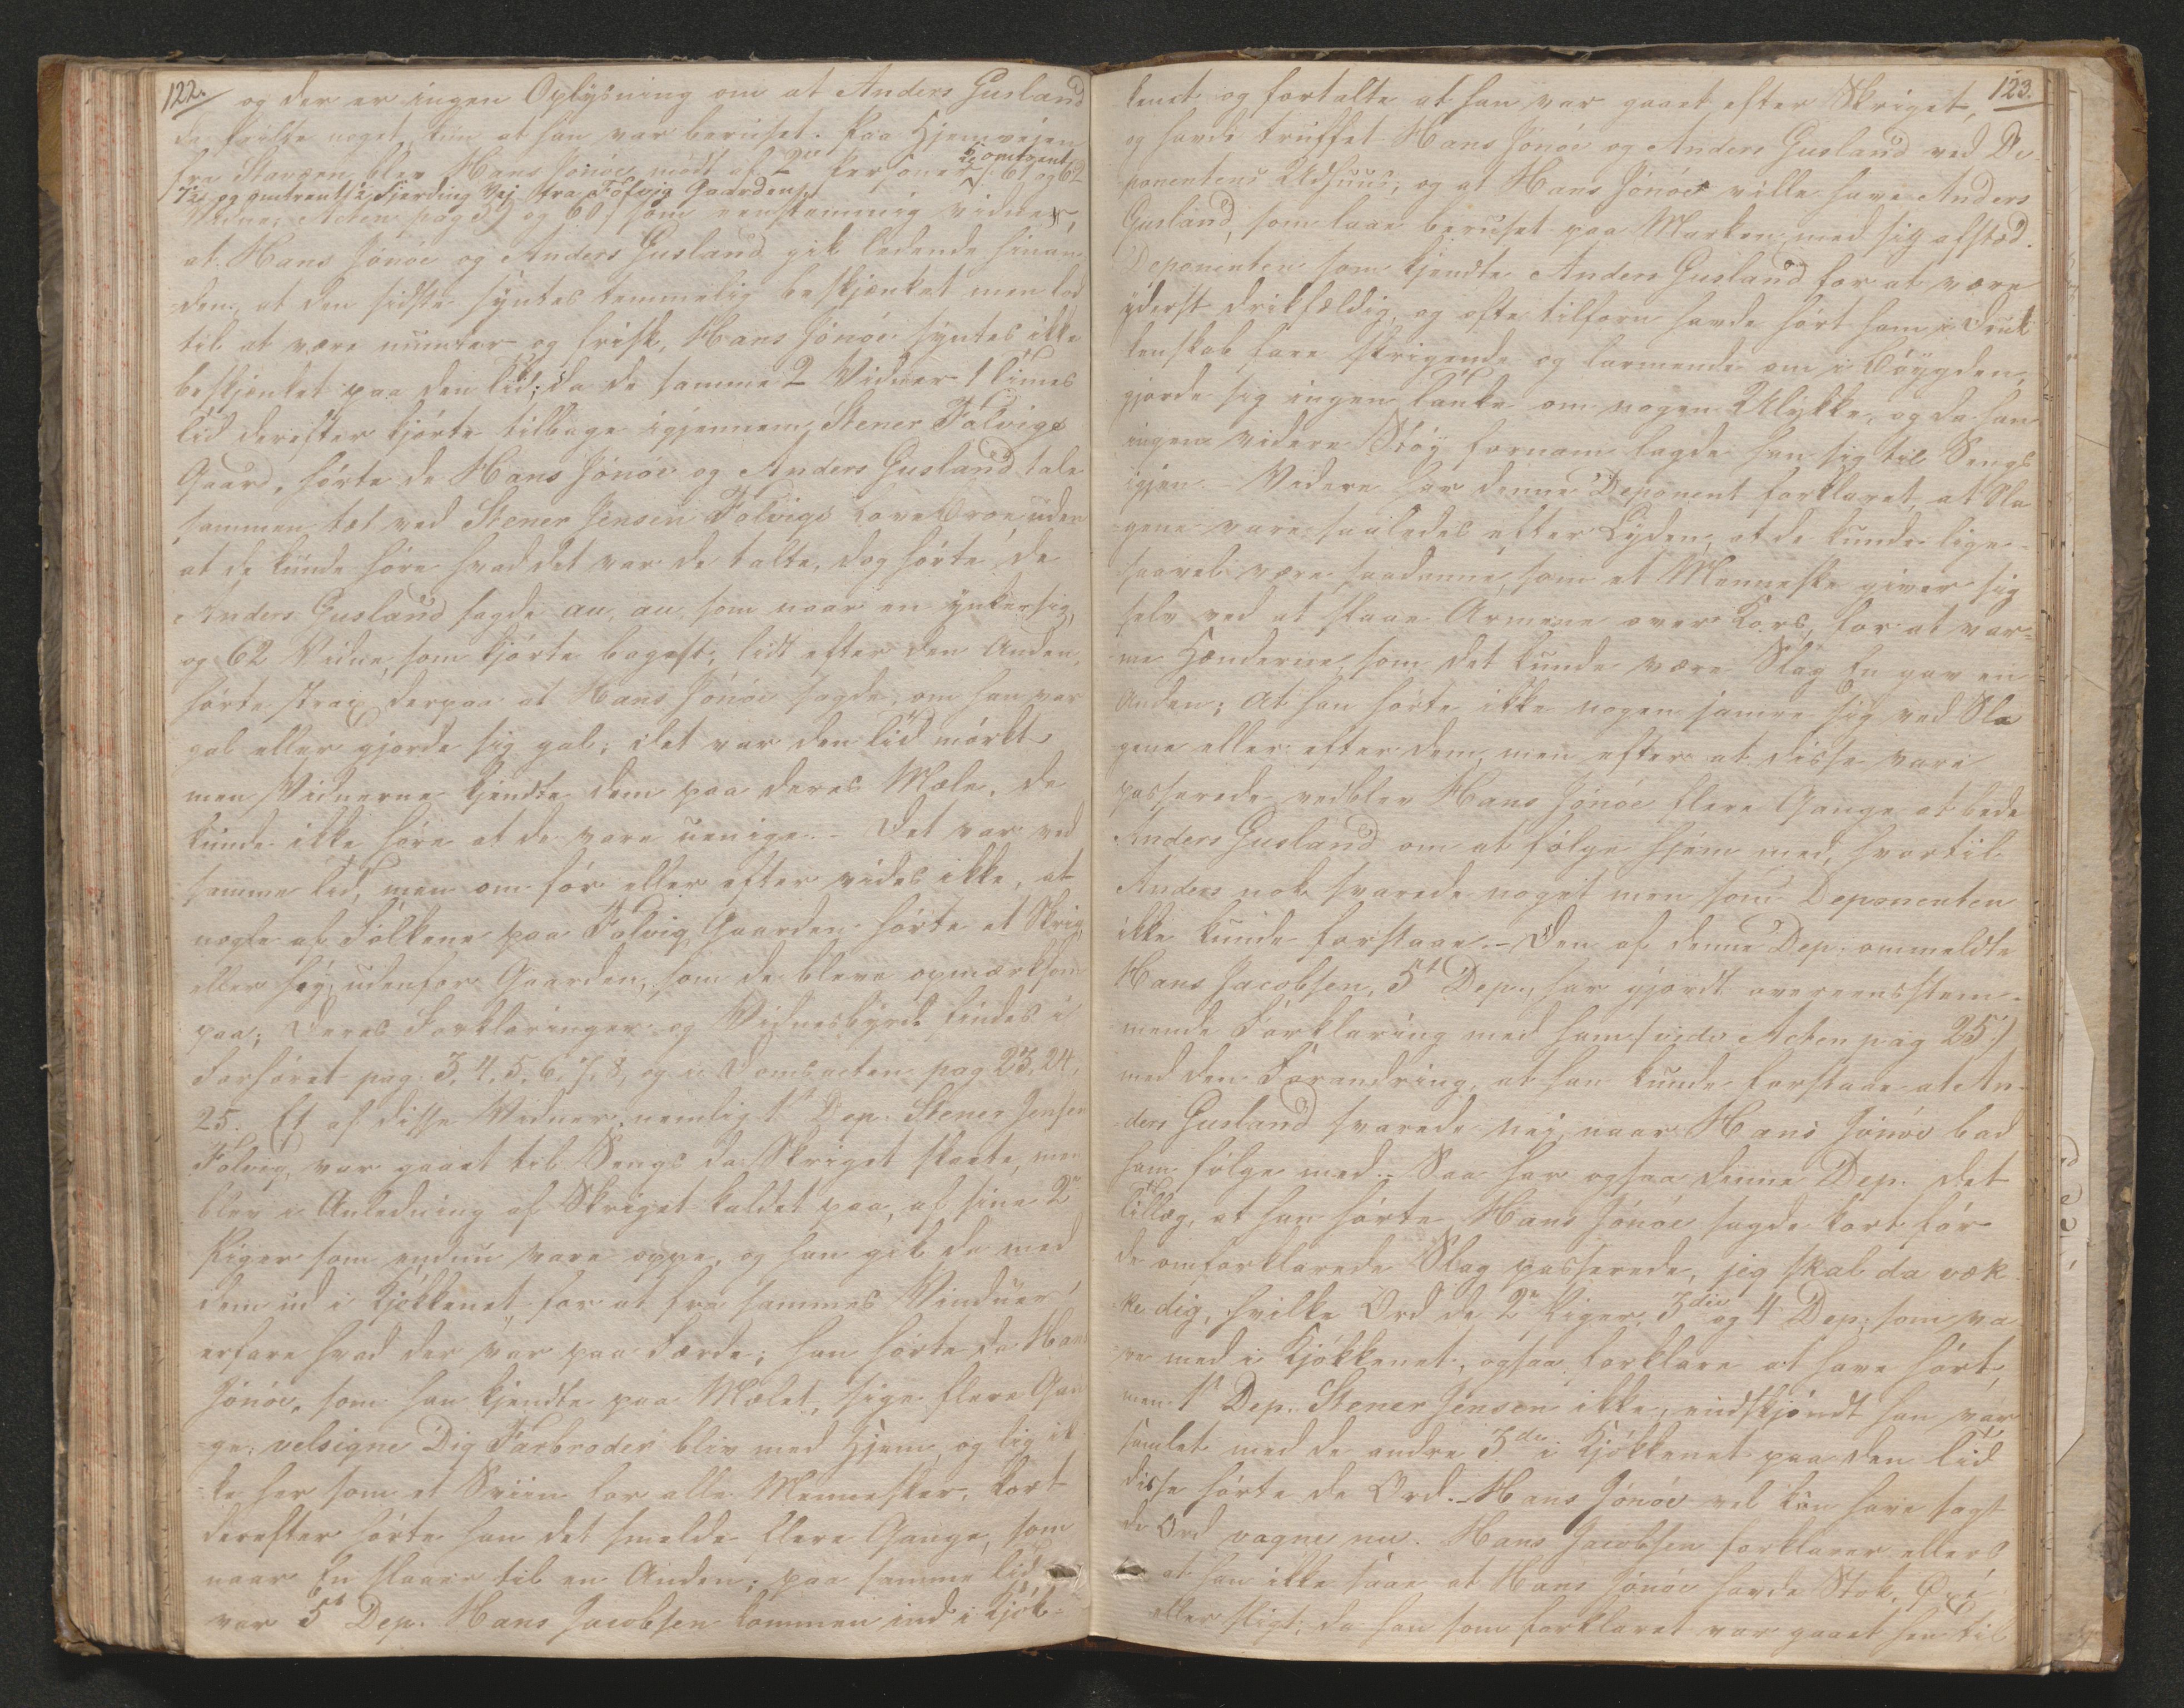 122.
og der er ingen Oplysning om at Anders Gusland
da feilte noget, kun at han var beruset. Paa Hjemveien
fra Stangen blev Hans Jónóe mødt af 2de Personer, 61 og 62
Kl. omtrent
7½, og omtrent ½ Fjerding Vej fra Folvig Gaarden
Vidne, Acten pag 59 og 60) som eenstemmig vidner,
at Hans Jónóe og Anders Gusland gik ledende hinan-
den, at den sidste syntes temmelig beskjænket men lod
til at være munter og frisk, Hans Jónóe syntes ikke
beskjænket paa den Tid; da de samme 2 Vidner 1 Times
Tid derefter kjørte tilbage igjennem Stener Folvigs
Gaard, hørte de Hans Jónóe og Anders Gusland tale
sammen tæt ved Stener Jensen Folvigs Lave Broe, uden
at de kunde høre hvad det var de talte, dog hørte de
Anders Gusland sagde au, au, som naar en ynker sig,
og 62 Vidne, som kjørte bagest, lidt efter den Anden,
hørte strax derpaa at Hans Jónóe sagde, om han var
gal eller gjorde sig gal; det var den Tid mørkt
men Vidnerne kjendte dem paa deres Mæle, de
kunde ikke høre at de vare uenige. – Det var ved
samme Tid, men om før eller efter vides ikke, at
nogle af Folkene paa Folvig Gaarden hørte et Skrig
eller høy udenfor Gaarden, som de bleve opmærksom
paa; deres Forklaringer og Vidnesbyrd findes i
Forhøret pag. 3, 4, 5, 6, 7, 8, og i Domsacten pag 23, 24,
25. Et af disse Vidner, nemlig 1st Dep. Stener Jensen
Folvig, var gaaet til Sengs da Skriget skeete, men
blev i Anledning af Skriget kaldet paa, af sine 2de
Piger som endnu vare oppe, og han gik da med
dem ud i Kjøkkenet, for at fra sammes Vinduer
erfare hvad der var paa Færde; han hørte da Hans
Jónóe, som han kjendte paa Mælet, sige flere Gan-
ge: velsigne Dig Farbroder bliv med Hjem, og lig ik-
ke her som et Sviin for alle Mennesker; kort
derefter hørte han det smelde flere Gange, som
naar En slaaer til en Anden; paa samme Tid
var 5t Dep. Hans Jacobsen kommen ind i Kjøk-
123.
kenet og fortalte at han var gaaet efter Skriget,
og havde truffet Hans Jónóe og Anders Gusland ved De-
ponentens Udhuus, og at Hans Jónóe ville have Anders
Gusland, som laae beruset paa Marken, med sig afsted.
Deponenten som kjendte Anders Gusland for at være
yderst drikfældig, og ofte tilforn havde hørt ham i Druk-
kenskab fare skrigende og larmende om i Bøygden,
gjorde sig ingen Tanke om nogen Ulykke, og da han
ingen videre Støy fornam lagde han sig til Sengs
igjen. – Videre har denne Deponent forklaret, at Sla-
gene vare saaledes efter Lyden, at de kunde lige-
saavel være saadanne, som et Menneske giver sig
selv ved at slaae Armene over Kors, for at var-
me Hænderne, som det kunde være Slag En gav en
Anden; at han hørte ikke nogen jamre sig ved Sla-
gene eller efter dem, men efter at disse vare
passerede vedblev Hans Jónóe flere Gange at bede
Anders Gusland om at følge hjem med, hvortil
Anders nok svarede noget men som Deponenten
ikke kunde forstaae. – Den af denne Dep. ommeldte
Hans Jacobsen, 5t Dep., har gjordt overeensstem-
mende Forklaring med ham (vide Acten pag 25)
med den Forandring, at han kunde forstaae at An-
ders Gusland svarede nej, naar Hans Jónóe bad
ham følge med. – Saa har ogsaa denne Dep. det
Tillæg, at han hørte Hans Jónóe sagde kort før
de omforklarede Slag passerede, jeg skal da væk-
ke dig, hvilke Ord de 2de Piger, 3die og 4 Dep. som va-
re med i Kjøkkenet, ogsaa forklare at have hørt,
men 1st Dep. Stener Jensen ikke, endskjøndt han var
samlet med de andre 3de i Kjøkkenet paa den Tid
disse hørte de Ord. – Hans Jónóe vel kan have sagt
de Ord vagne nu. Hans Jacobsen forklarer ellers
at han ikke saae at Hans Jónóe havde Stok, Øxe
eller sligt, da han som forklaret var gaaet hen til